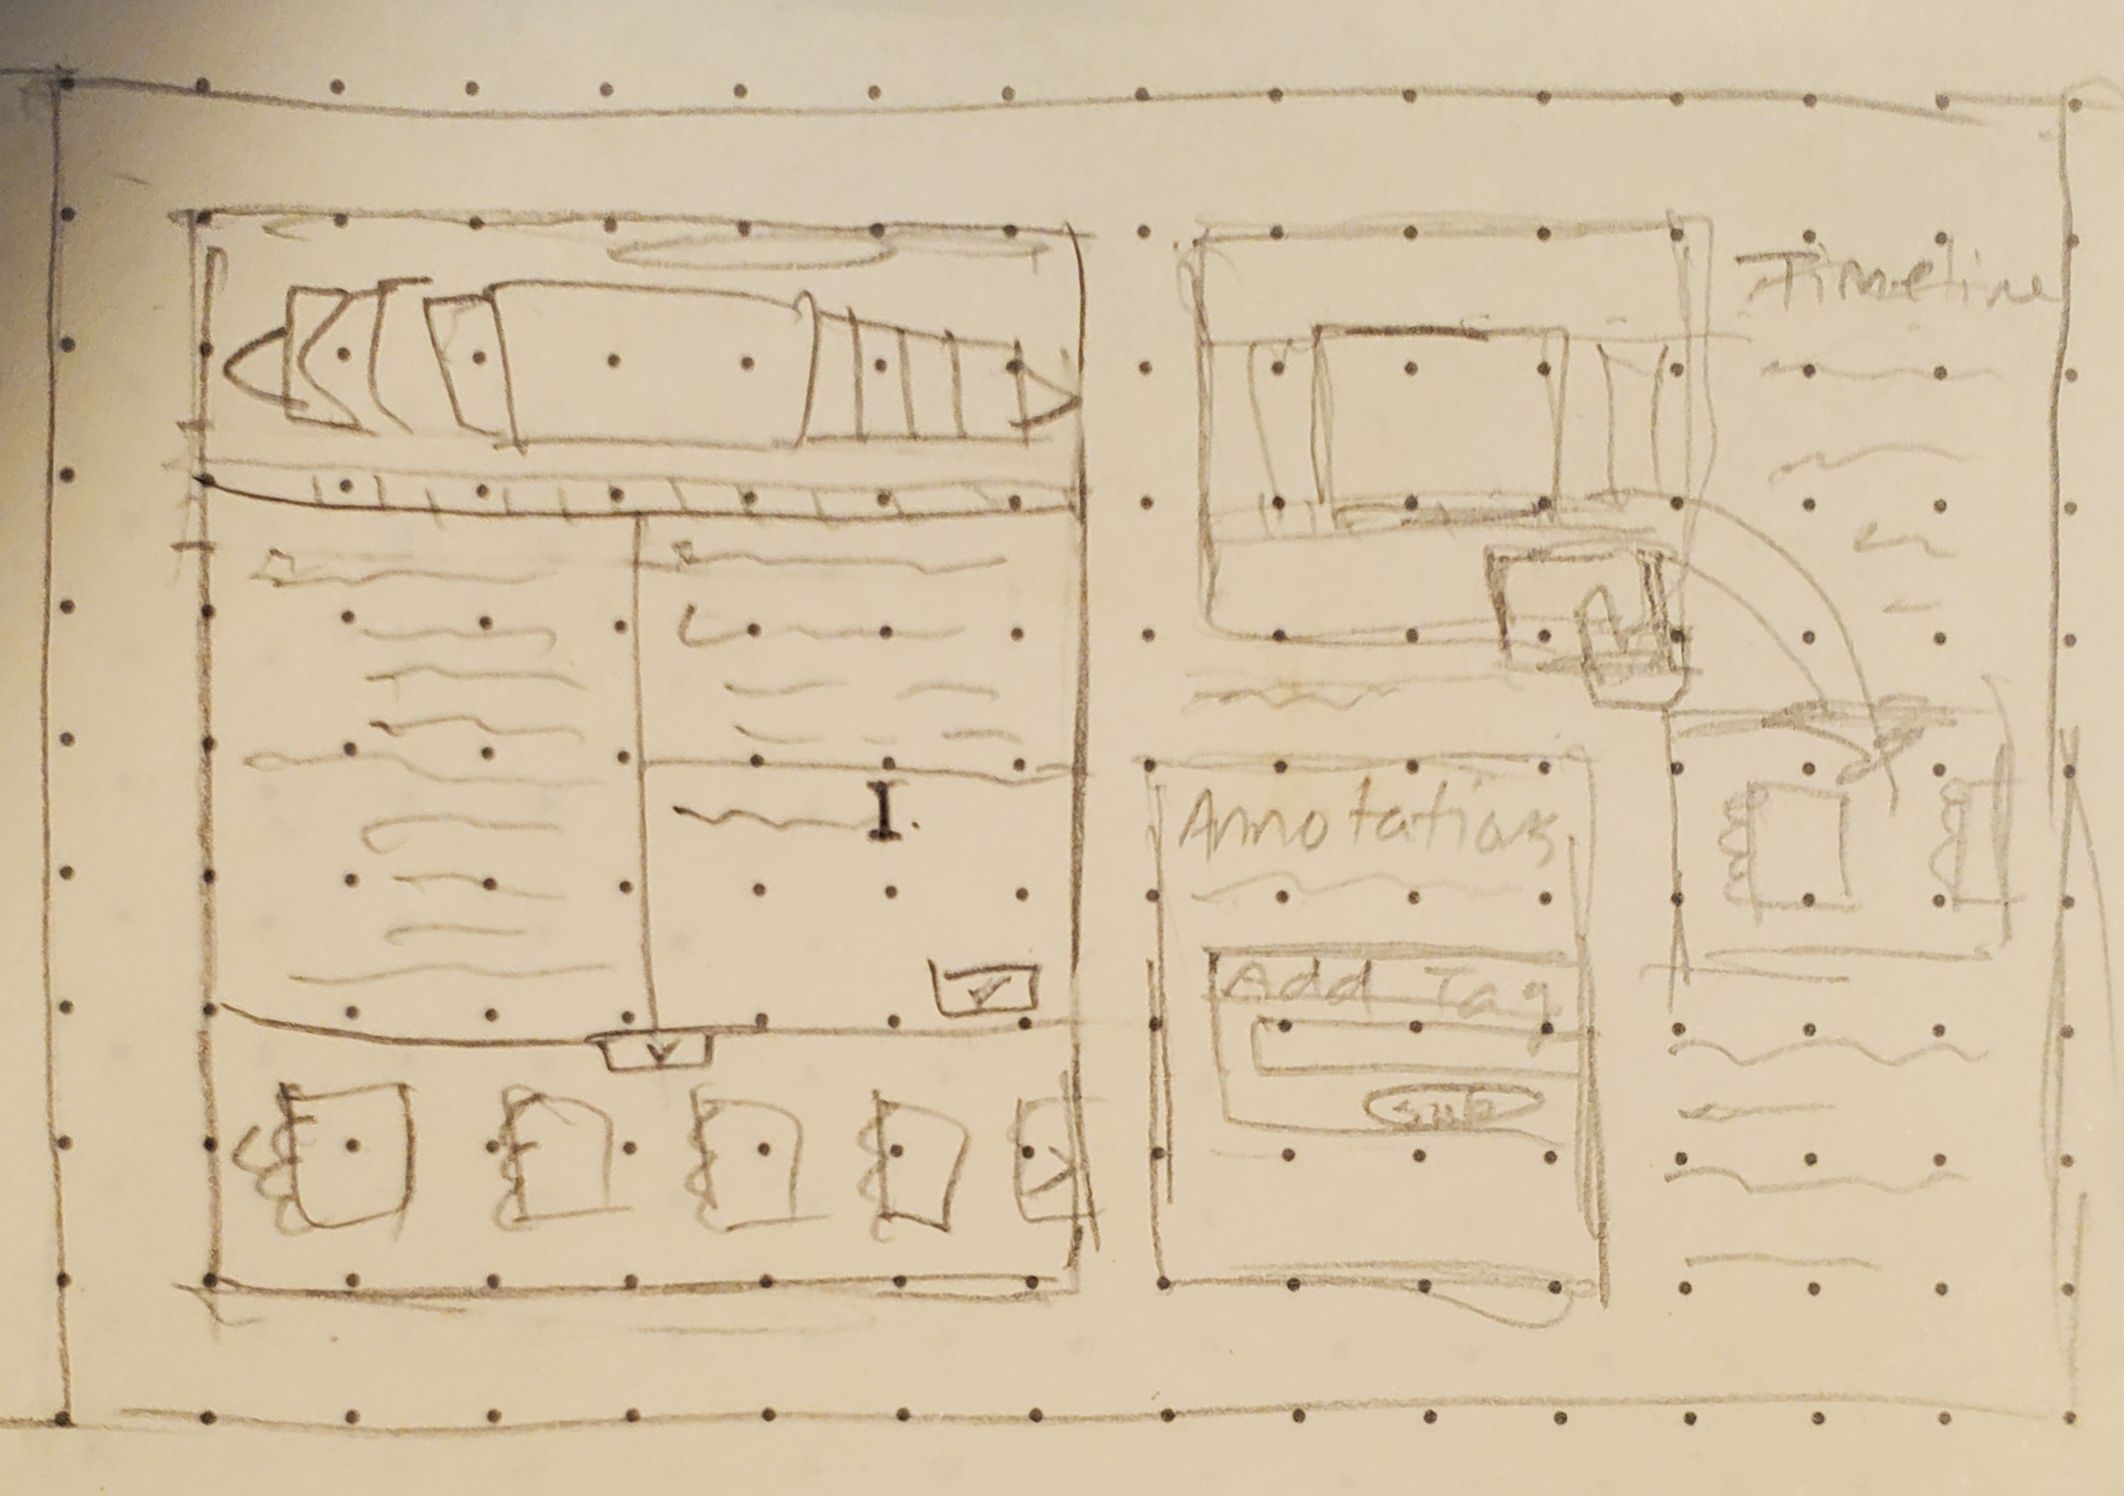 Timeline
I.
Annotations
Add Tag